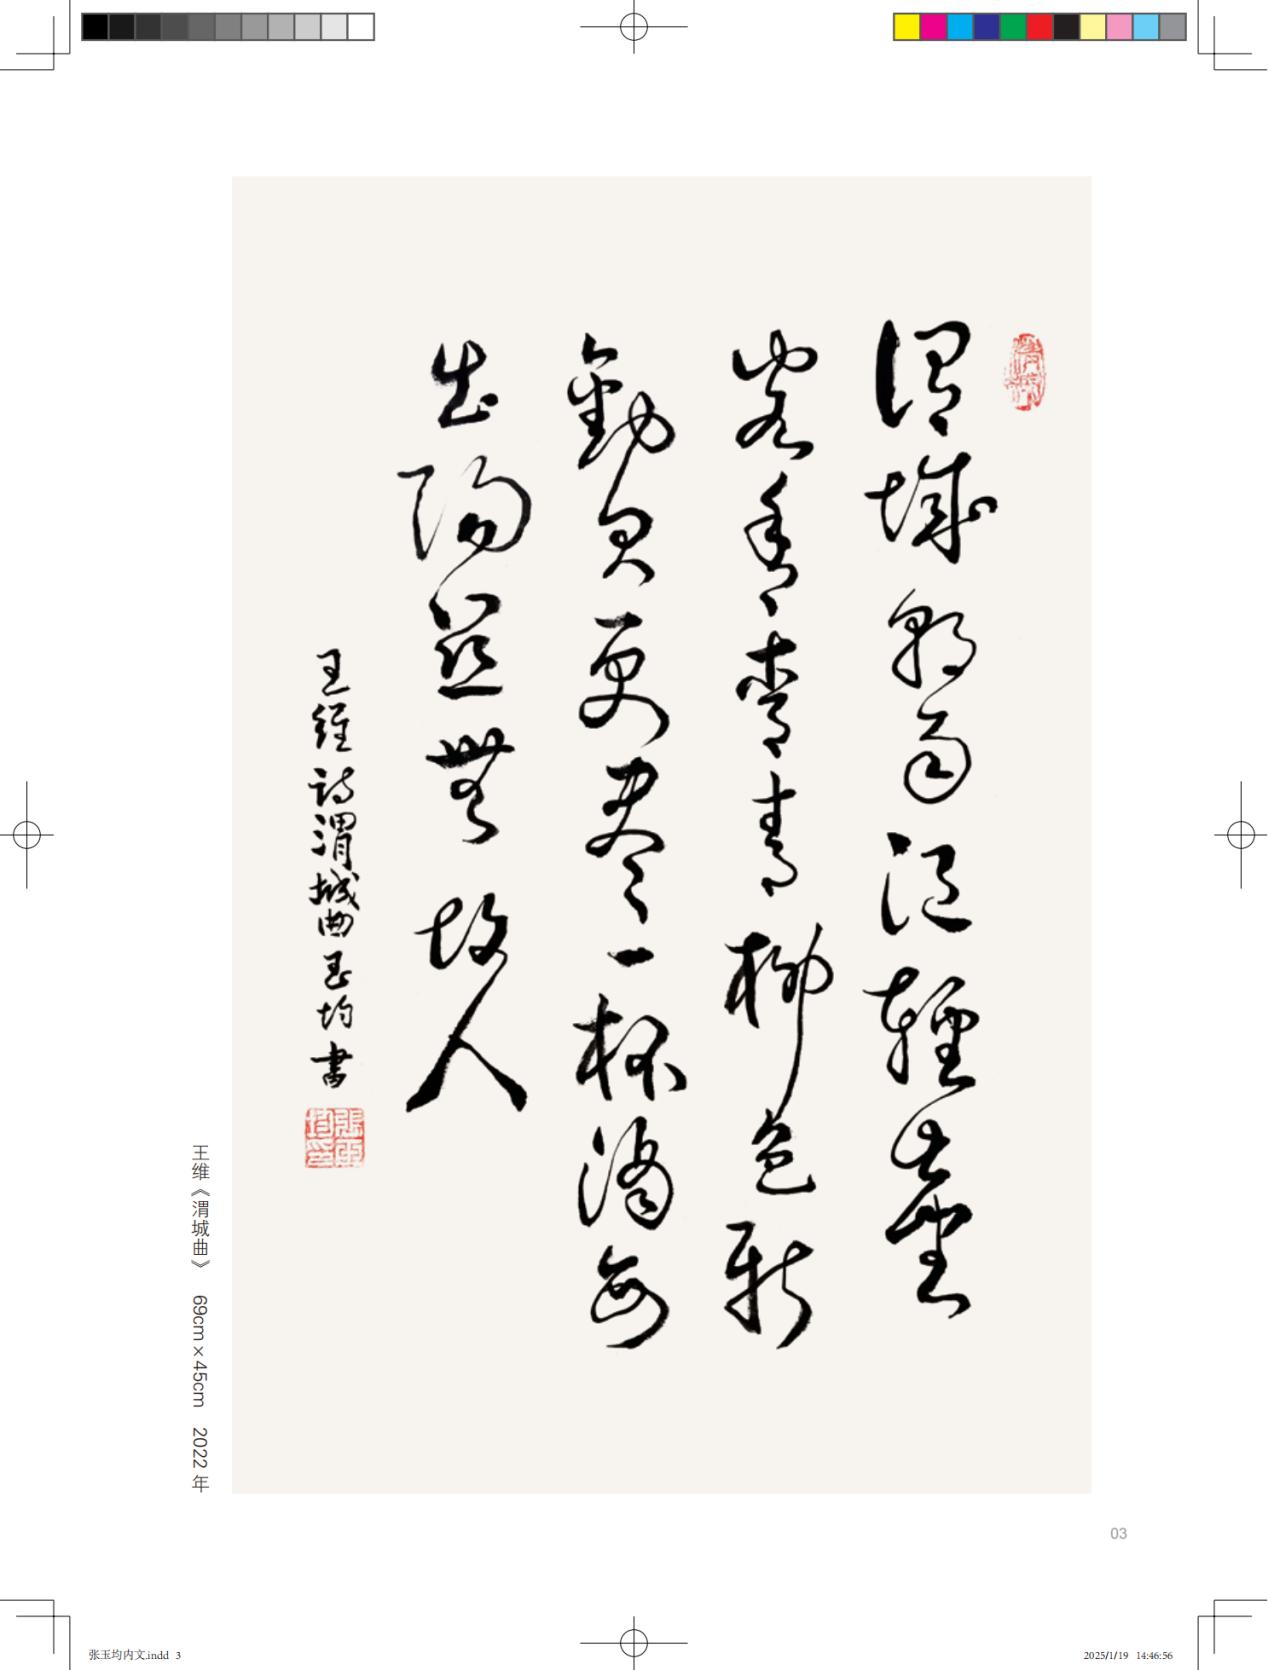 渭城朝雨浥輕塵
客舍青青柳色新
勸君更盡一杯酒西
出陽關無故人
王維詩渭城曲玉均書
張玉均印
王维《渭城曲》 69cm×45cm 2022年
03
张玉均内文.indd 3
2025/1/19 14:46:56